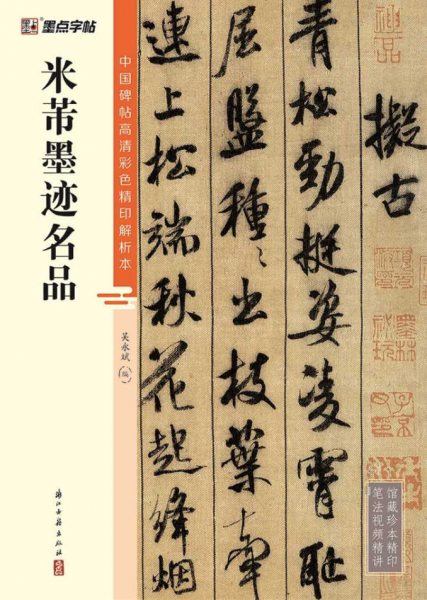 墨点字帖
中国碑帖高清彩色精印解析本
米芾墨迹名品
吴永斌 编
浙江古籍出版社
擬古
青松勁挺姿凌霄耻
屈盤種〻出枝葉牽
連上松端秋花起絳烟
神品
墨林秘玩
馆藏珍本精印
笔法视频精讲